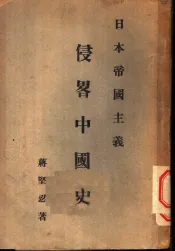 日本帝國主義
侵畧中國史
蔣堅忍著